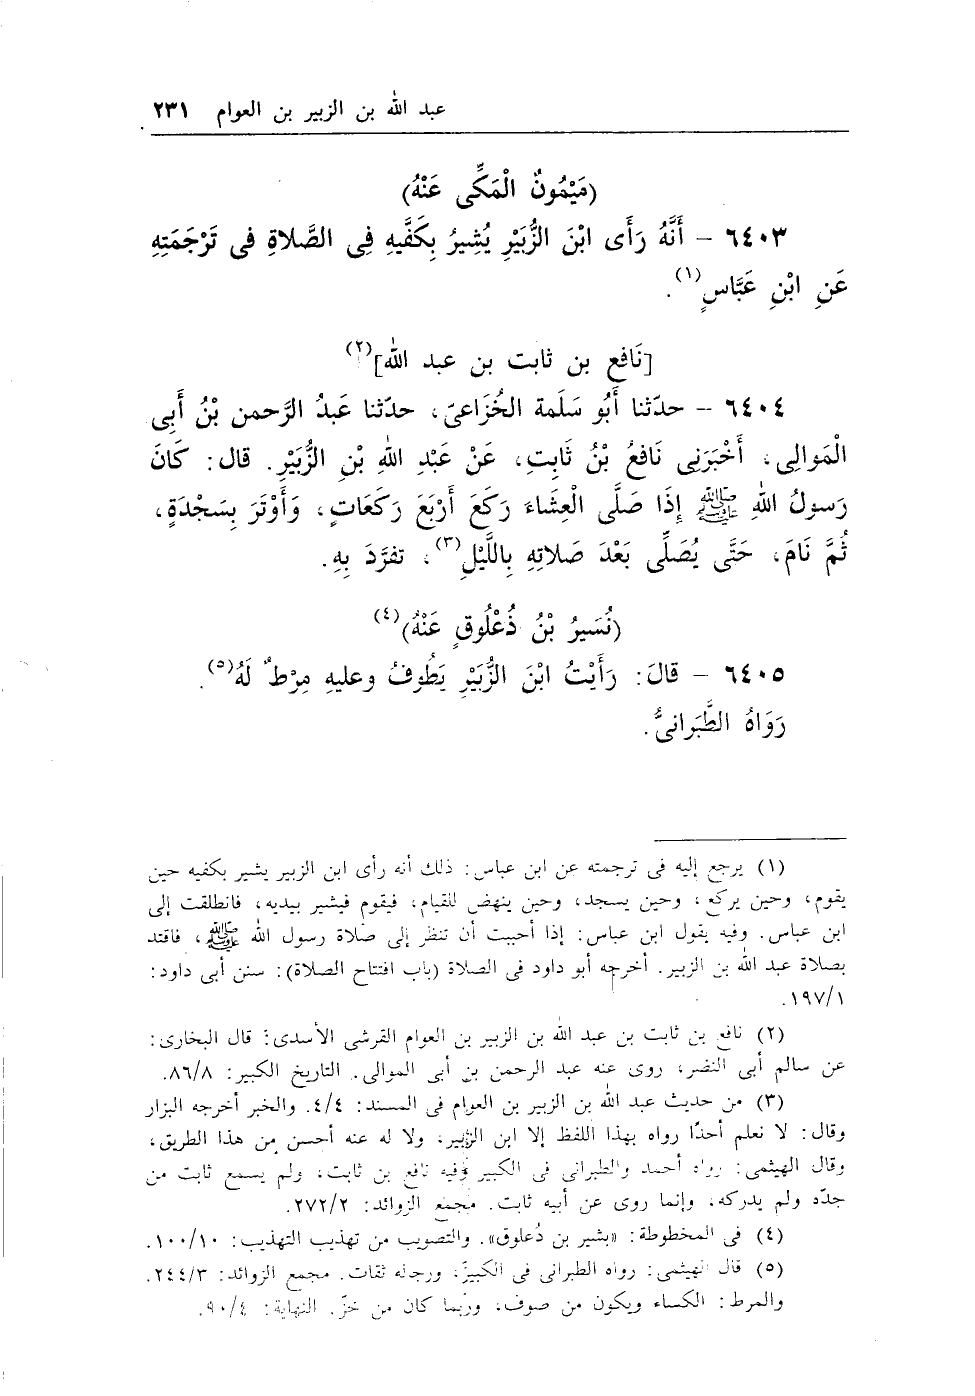 عبد الله بن الزبير بن العوام ٢٣١
(مَيْمُونٌ الْمَكِّى عَنْهُ)
٦٤٠٣ - أَنَّهُ رَأَى ابْنَ الزُّبَيْرِ يُشِيرُ بِكَفَّيهِ فِى الصَّلاةِ فى تَرْجَمَتِهِ
عَنِ ابْنِ عَبَّاسٍ(١).
[نَافع بن ثابت بن عبد الله](٢)
٦٤٠٤ - حدّثنا أَبُو سَلَمة الخُزَاعىّ، حدّثنا عَبدُ الرَّحمن بْنُ أَبِى
الْمَوالِى، أَخْبَرَنِى نَافعُ بْنُ ثَابِتٍ، عَنْ عَبْدِ اللهِ بْنِ الزُّبَيْرِ. قال: كَانَ
رَسولُ اللهِ ﷺ إِذَا صَلَّى الْعِشَاءَ رَكَعَ أَرْبَعَ رَكَعَاتٍ، وَأَوْتَرَ بِسَجْدَةٍ،
ثُمَّ نَامَ، حَتَّى يُصَلِّى بَعْدَ صَلاتِهِ بِاللَّيْلِ(٣)، تفرَّدَ بِهِ.
(نُسَيرُ بْنُ ذُعْلُوقٍ عَنْهُ)(٤)
٦٤٠٥ - قالَ: رَأَيْتُ ابْنَ الزُّبَيْرِ يَطُوفُ وعليهِ مِرْطٌ لَهُ(٥).
رَوَاهُ الطَّبَرانىُّ.
(١) يرجع إليه فى ترجمته عن ابن عباس: ذلك أنه رأى ابن الزبير يشير بكفيه حين
يقوم، وحين يركع، وحين يسجد، وحين ينهض للقيام، فيقوم فيشير بيديه، فانطلقت إلى
ابن عباس. وفيه يقول ابن عباس: إذا أحببت أن تنظر إلى صلاة رسول الله ﷺ، فاقتد
بصلاة عبد الله بن الزبير. أخرجه أبو داود فى الصلاة (باب افتتاح الصلاة): سنن أبى داود:
١٩٧/١.
(٢) نافع بن ثابت بن عبد الله بن الزبير بن العوام القرشى الأسدى: قال البخارى:
عن سالم أبى النضر، روى عنه عبد الرحمن بن أبى الموالى. التاريخ الكبير: ٨٦/٨.
(٣) من حديث عبد الله بن الزبير بن العوام فى المسند: ٤/٤. والخبر أخرجه البزار
وقال: لا نعلم أحدًا رواه بهذا اللفظ إلا ابن الزبير، ولا له عنه أحسن من هذا الطريق،
وقال الهيثمى: رواه أحمد والطبرانى فى الكبير وفيه نافع بن ثابت، ولم يسمع ثابت من
جدّه ولم يدركه، وإنما روى عن أبيه ثابت. مجمع الزوائد: ٢٧٢/٢.
(٤) فى المخطوطة: «بشير بن دُعلوق». والتصويب من تهذيب التهذيب: ١٠٠/١٠.
(٥) قال الهيثمى: رواه الطبرانى فى الكبير، ورجاله ثقات. مجمع الزوائد: ٢٤٤/٣.
والمرط: الكساء ويكون من صوف، وربّما كان من خزّ. النهاية: ٩٠/٤.